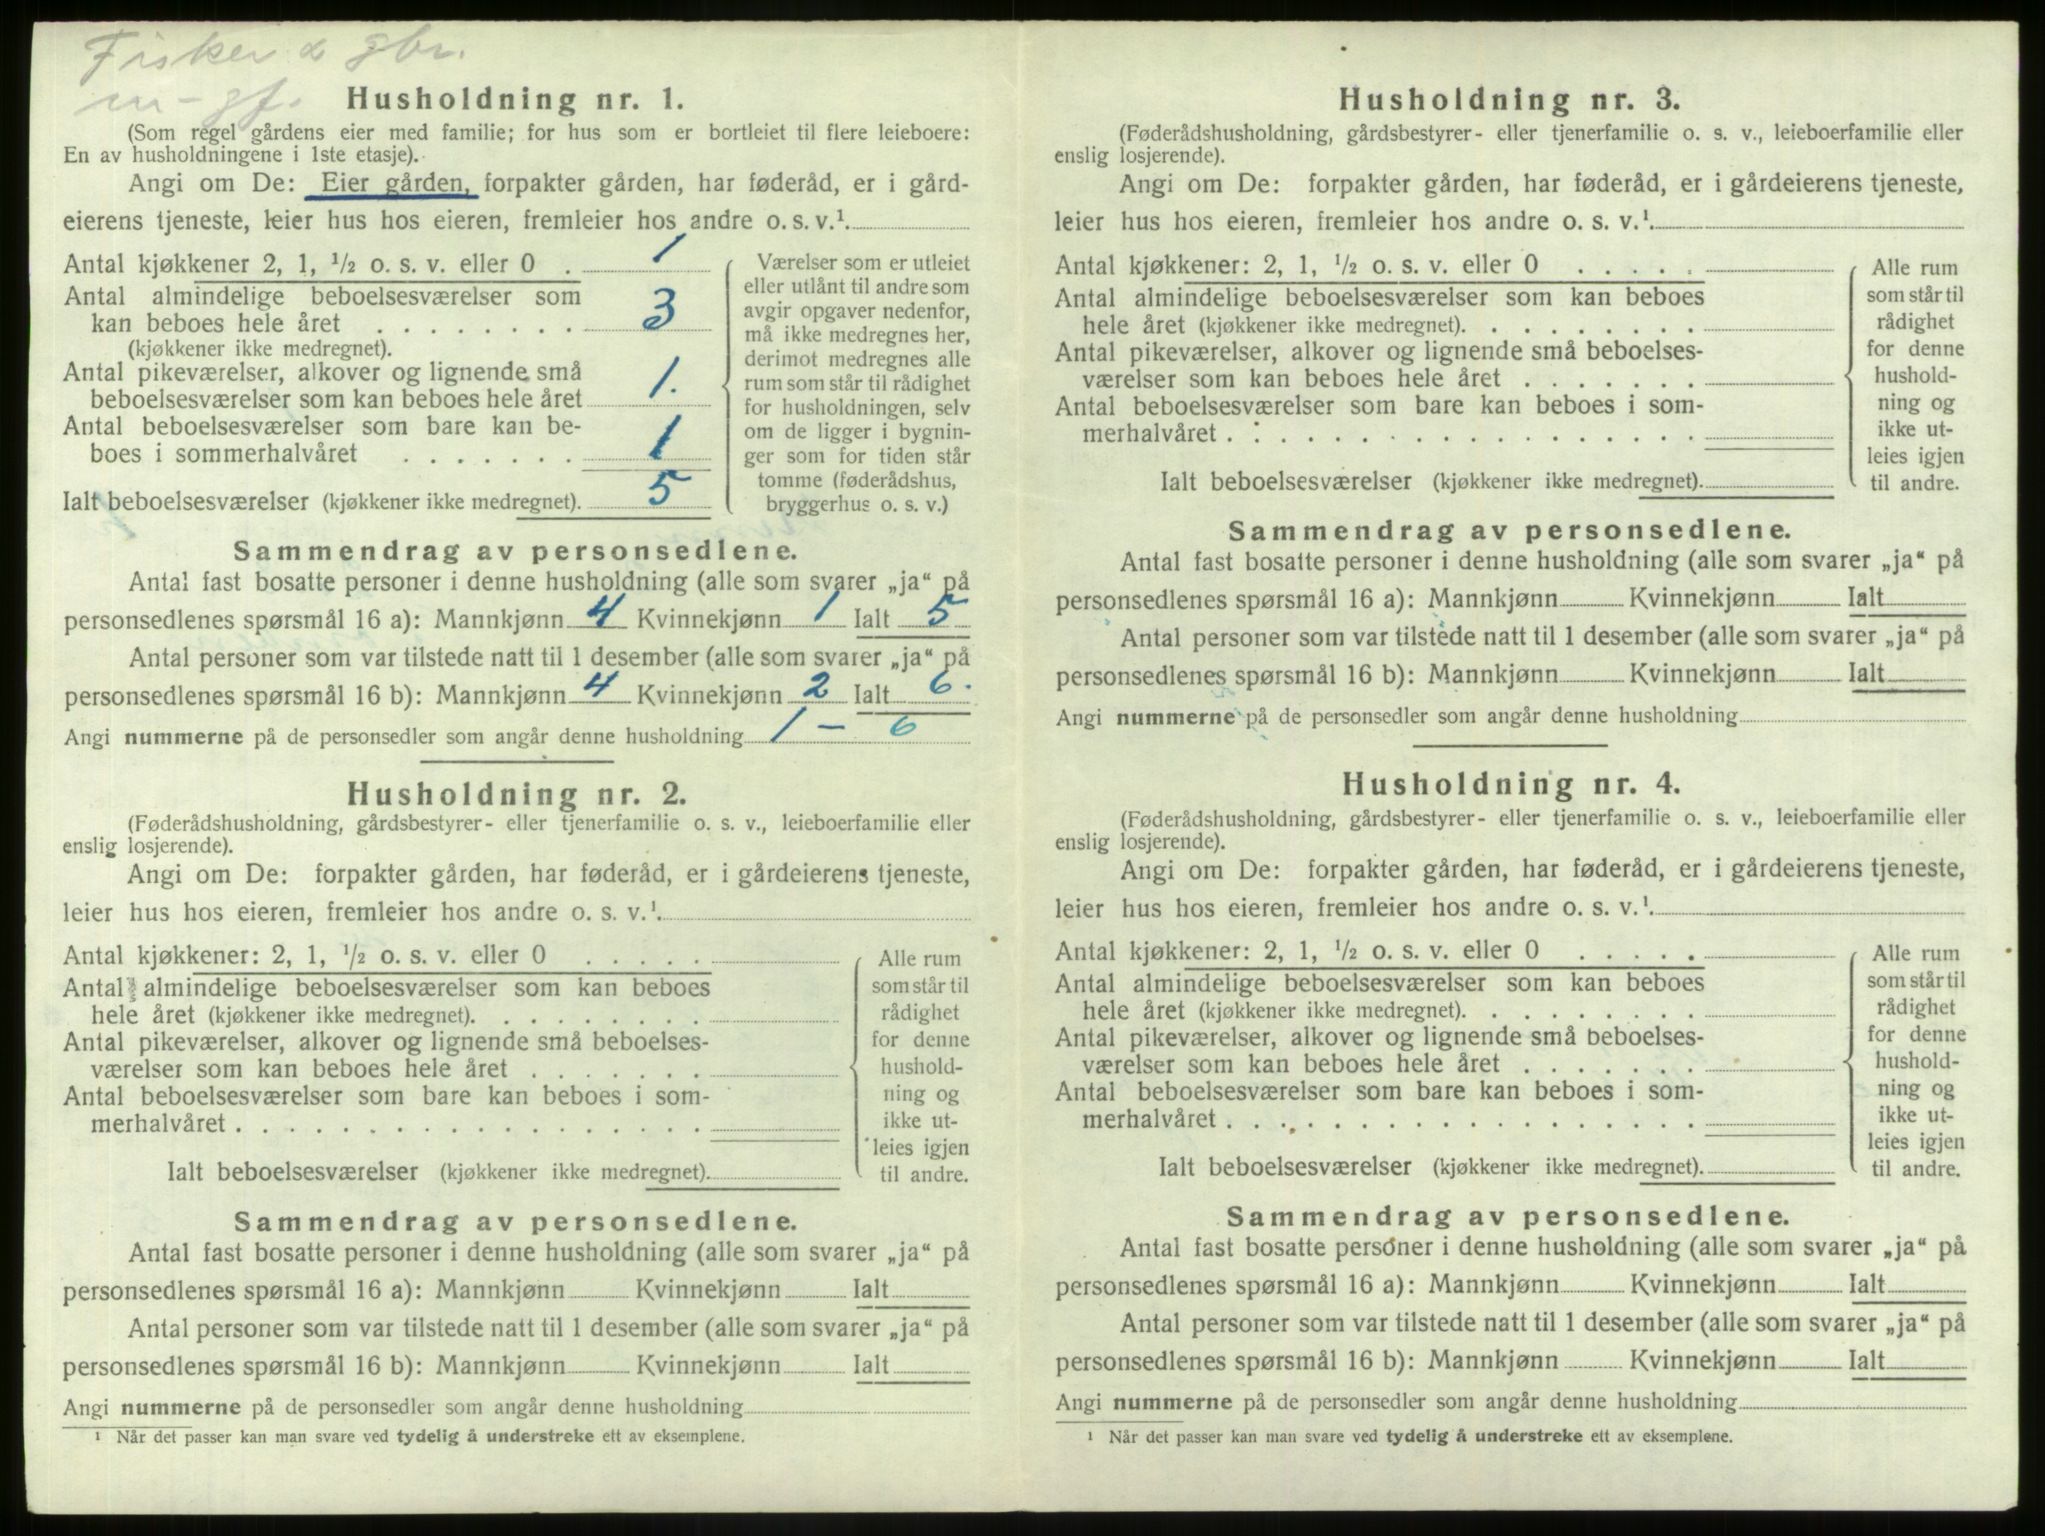 Fisker & gbr.
m-gf.
Husholdning nr. 1.
(Som regel gårdens eier med familie; for hus som er bortleiet til flere leieboere:
En av husholdningene i 1ste etasje).
Angi om De: Eier gården, forpakter gården, har føderåd, er i gård-
eierens tjeneste, leier hus hos eieren, fremleier hos andre o. s. v.¹
Antal kjøkkener 2, 1, ½ o. s. v. eller 0 . 1
Antal almindelige beboelsesværelser som
kan beboes hele året . . . . . . . . 3
(kjøkkener ikke medregnet).
Antal pikeværelser, alkover og lignende små
beboelsesværelser som kan beboes hele året 1.
Antal beboelsesværelser som bare kan be-
boes i sommerhalvåret . . . . . . . 1
Ialt beboelsesværelser (kjøkkener ikke medregnet). 5
Værelser som er utleiet
eller utlånt til andre som
avgir opgaver nedenfor,
må ikke medregnes her,
derimot medregnes alle
rum som står til rådighet
for husholdningen, selv
om de ligger i bygnin-
ger som for tiden står
tomme (føderådshus,
bryggerhus o. s. v.)
Sammendrag av personsedlene.
Antal fast bosatte personer i denne husholdning (alle som svarer „ja“ på
personsedlenes spørsmål 16 a): Mannkjønn 4 Kvinnekjønn 1 Ialt 5
Antal personer som var tilstede natt til 1 desember (alle som svarer „ja“ på
personsedlenes spørsmål 16 b): Mannkjønn 4 Kvinnekjønn 2 Ialt 6.
Angi nummerne på de personsedler som angår denne husholdning 1 — 6
Husholdning nr. 2.
(Føderådshusholdning, gårdsbestyrer- eller tjenerfamilie o. s. v., leieboerfamilie eller
enslig losjerende).
Angi om De: forpakter gården, har føderåd, er i gårdeierens tjeneste,
leier hus hos eieren, fremleier hos andre o. s. v.¹
Antal kjøkkener: 2, 1, ½ o. s. v. eller 0 . . . . .
Antal almindelige beboelsesværelser som kan beboes
hele året (kjøkkener ikke medregnet). . . . . . . . .
Antal pikeværelser, alkover og lignende små beboelses-
værelser som kan beboes hele året . . . . . . .
Antal beboelsesværelser som bare kan beboes i som-
merhalvåret . . . . . . . . . . . . . . . . . .
Ialt beboelsesværelser (kjøkkener ikke medregnet).
Alle rum
som står til
rådighet
for denne
hushold-
ning og
ikke ut-
leies igjen
til andre.
Sammendrag av personsedlene.
Antal fast bosatte personer i denne husholdning (alle som svarer „ja“ på
personsedlenes spørsmål 16 a): Mannkjønn Kvinnekjønn Ialt
Antal personer som var tilstede natt til 1 desember (alle som svarer „ja“ på
personsedlenes spørsmål 16 b): Mannkjønn Kvinnekjønn Ialt
Angi nummerne på de personsedler som angår denne husholdning
¹ Når det passer kan man svare ved tydelig å understreke ett av eksemplene.
Husholdning nr. 3.
(Føderådshusholdning, gårdsbestyrer- eller tjenerfamilie o. s. v., leieboerfamilie eller
enslig losjerende).
Angi om De: forpakter gården, har føderåd, er i gårdeierens tjeneste,
leier hus hos eieren, fremleier hos andre o. s. v.¹
Antal kjøkkener: 2, 1, ½ o. s. v. eller 0 . . . . .
Antal almindelige beboelsesværelser som kan beboes
hele året (kjøkkener ikke medregnet). . . . . . . . .
Antal pikeværelser, alkover og lignende små beboelses-
værelser som kan beboes hele året . . . . . . .
Antal beboelsesværelser som bare kan beboes i som-
merhalvåret . . . . . . . . . . . . . . . . . .
Ialt beboelsesværelser (kjøkkener ikke medregnet).
Alle rum
som står til
rådighet
for denne
hushold-
ning og
ikke ut-
leies igjen
til andre.
Sammendrag av personsedlene.
Antal fast bosatte personer i denne husholdning (alle som svarer „ja“ på
personsedlenes spørsmål 16 a): Mannkjønn Kvinnekjønn Ialt
Antal personer som var tilstede natt til 1 desember (alle som svarer „ja“ på
personsedlenes spørsmål 16 b): Mannkjønn Kvinnekjønn Ialt
Angi nummerne på de personsedler som angår denne husholdning
Husholdning nr. 4.
(Føderådshusholdning, gårdsbestyrer- eller tjenerfamilie o. s. v., leieboerfamilie eller
enslig losjerende).
Angi om De: forpakter gården, har føderåd, er i gårdeierens tjeneste,
leier hus hos eieren, fremleier hos andre o. s. v.¹
Antal kjøkkener: 2, 1, ½ o. s. v. eller 0 . . . . .
Antal almindelige beboelsesværelser som kan beboes
hele året (kjøkkener ikke medregnet). . . . . . . . .
Antal pikeværelser, alkover og lignende små beboelses-
værelser som kan beboes hele året . . . . . . .
Antal beboelsesværelser som bare kan beboes i som-
merhalvåret . . . . . . . . . . . . . . . . . .
Ialt beboelsesværelser (kjøkkener ikke medregnet).
Alle rum
som står til
rådighet
for denne
hushold-
ning og
ikke ut-
leies igjen
til andre.
Sammendrag av personsedlene.
Antal fast bosatte personer i denne husholdning (alle som svarer „ja“ på
personsedlenes spørsmål 16 a): Mannkjønn Kvinnekjønn Ialt
Antal personer som var tilstede natt til 1 desember (alle som svarer „ja“ på
personsedlenes spørsmål 16 b): Mannkjønn Kvinnekjønn Ialt
Angi nummerne på de personsedler som angår denne husholdning
¹ Når det passer kan man svare ved tydelig å understreke ett av eksemplene.